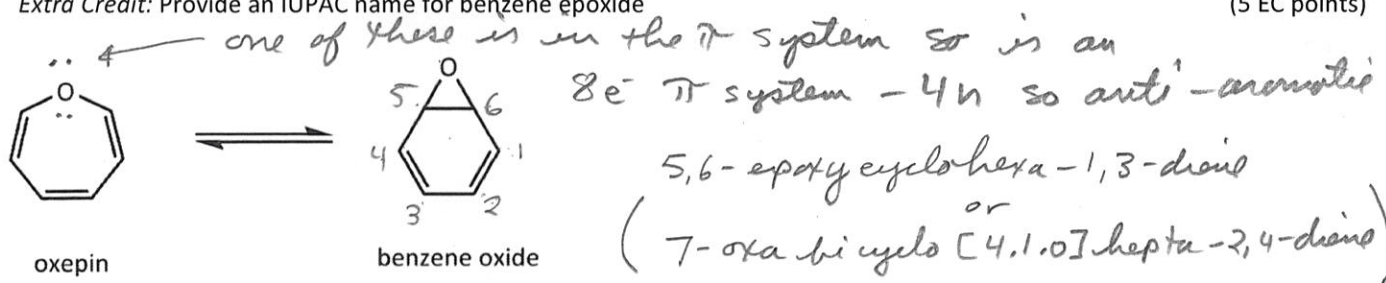 Extra Credit: Provide an IUPAC name for benzene epoxide (5 EC points)
one of these is in the π system so is an
8e⁻ π system - 4n so anti-aromatic
O
O
5 6
4 1
3 2
5,6-epoxycyclohexa-1,3-diene
or
(7-oxabicyclo[4.1.0]hepta-2,4-diene)
oxepin
benzene oxide